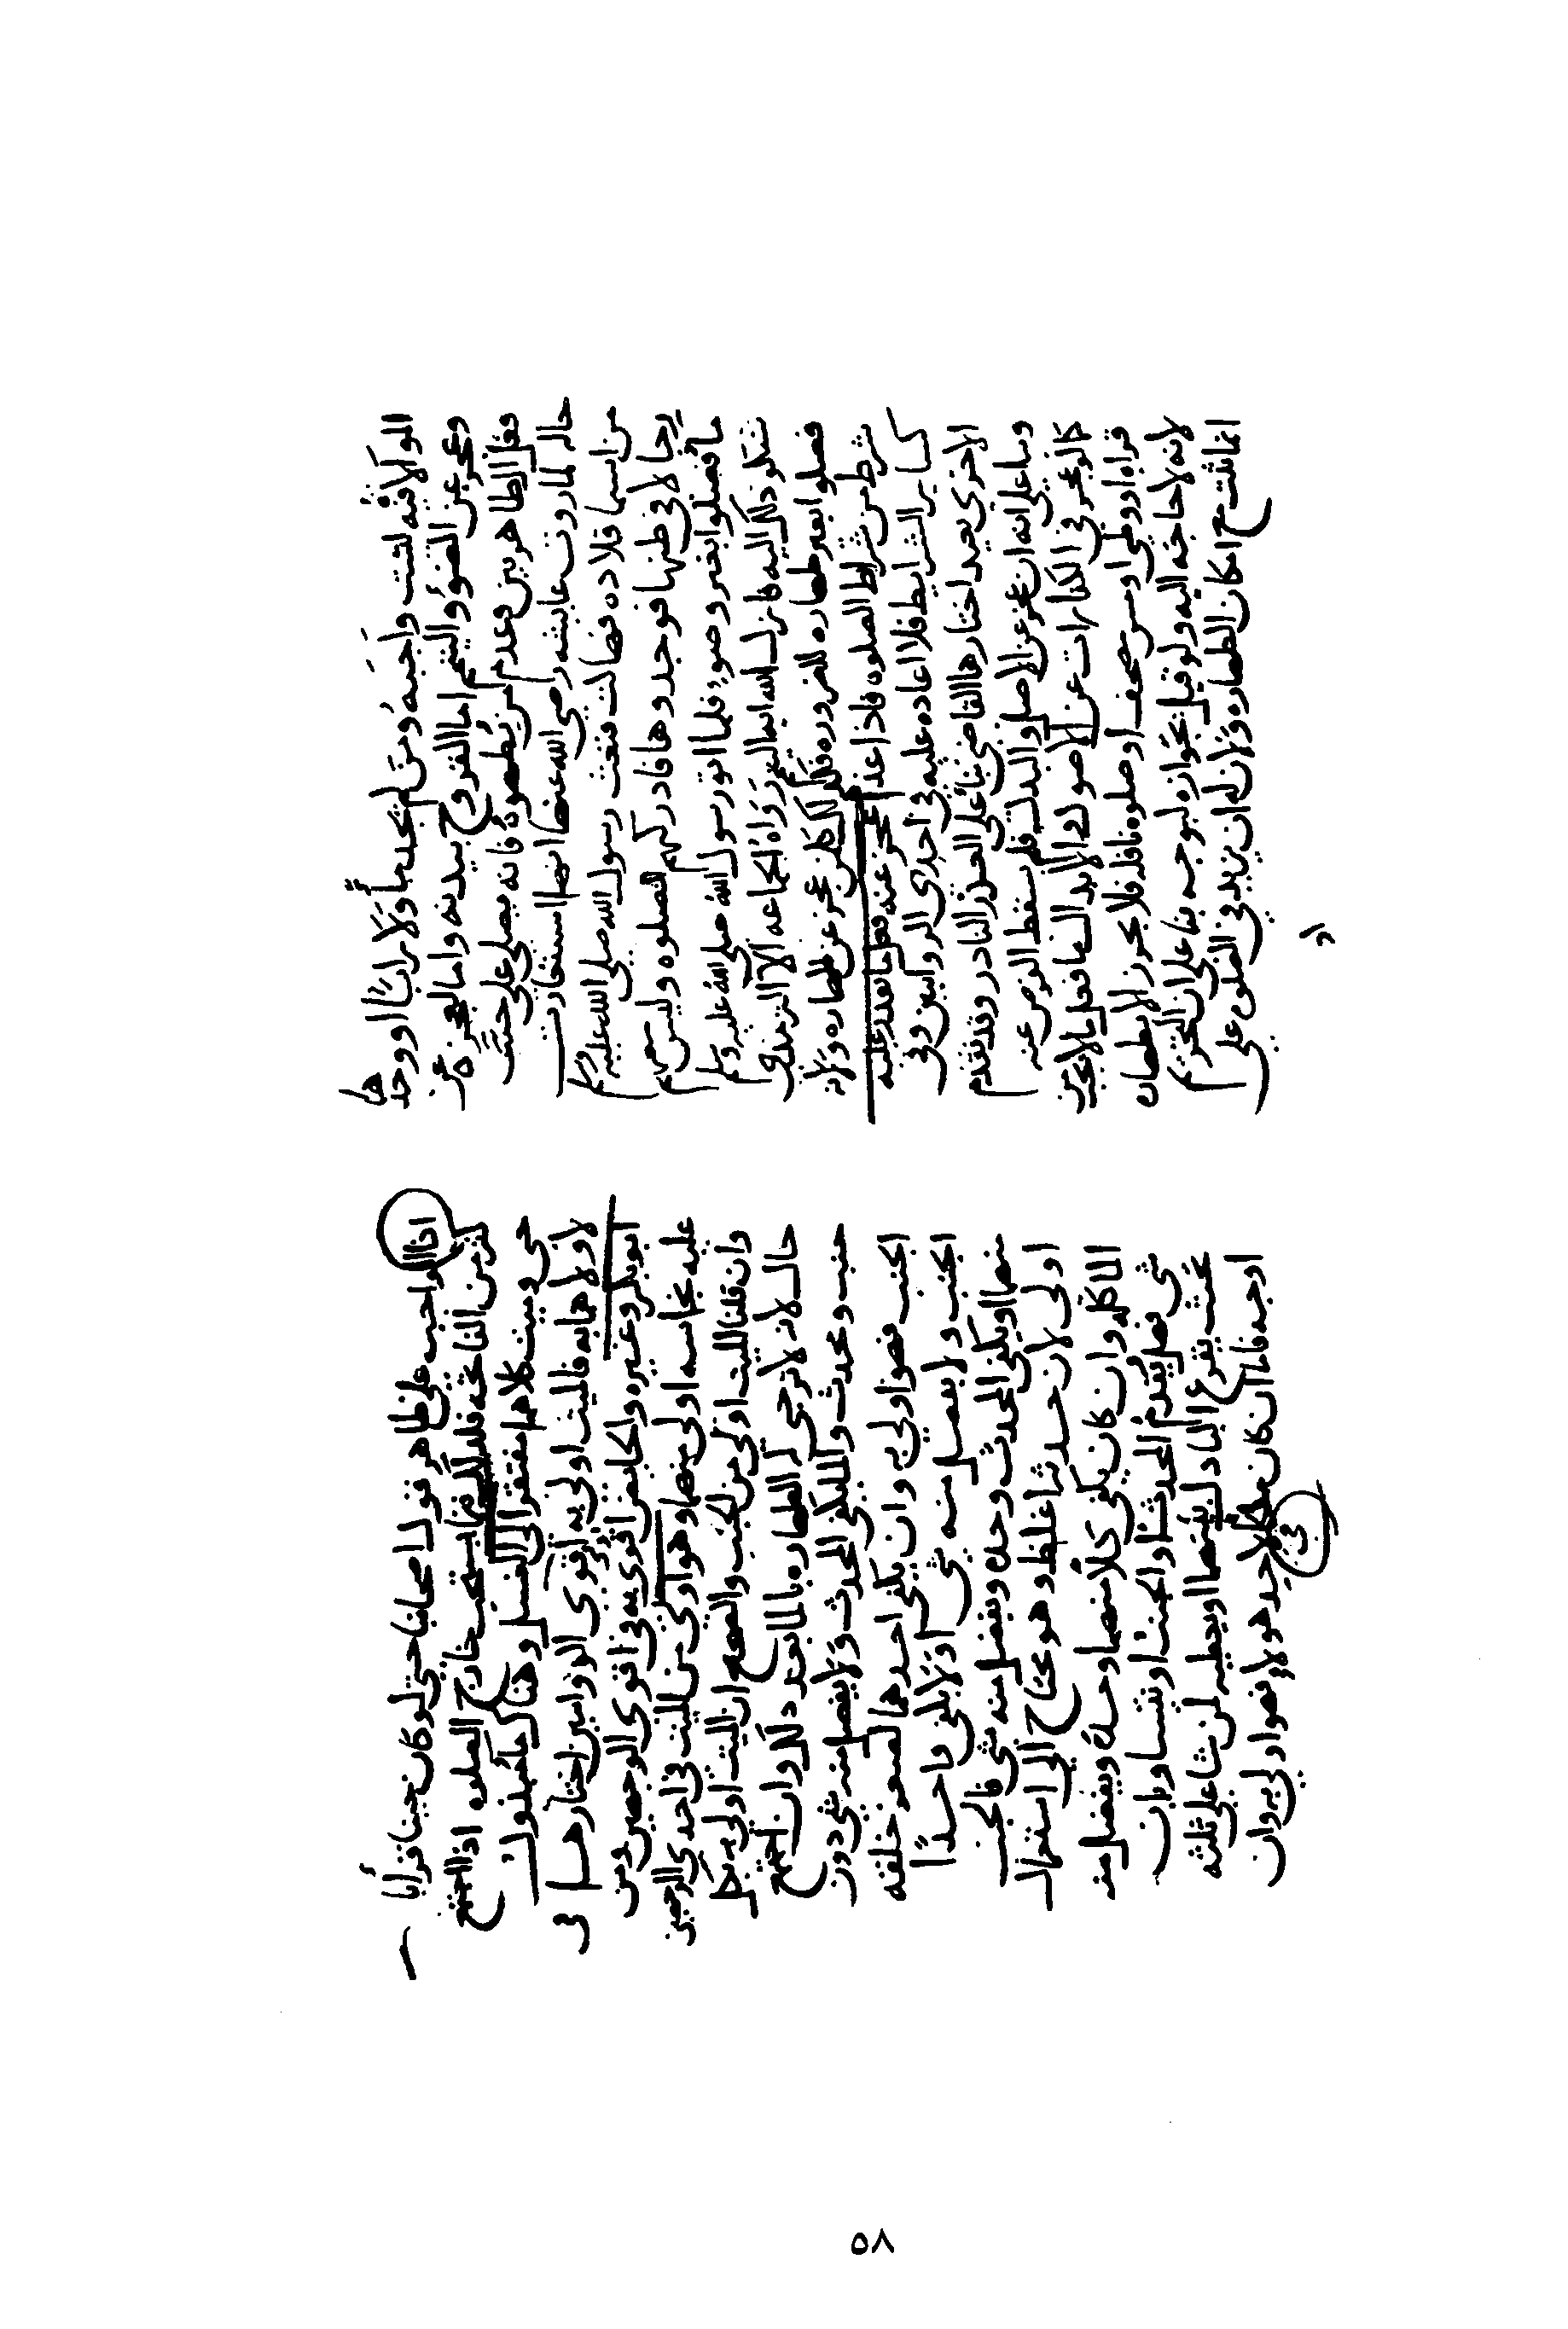 الموالاة فيه لثبت واجبه ومن لم يجد ماء ولا ترابا او وجدها
وعجز عن الوضو والتيمم اما لقروح ببدنه واما لعجزه عن
فعل الطاهرين وعدم من يطهره فانه يصلي على حسب
حاله لما روت عايشه رضي الله عنها انها استعارت
من اسما قلاده فهلكت فبعث رسول الله صلى الله عليه وسلم
رجالا في طلبها فوجدوها فادركتهم الصلوه وليس معهم
ما فصلوا بغير وضوء فلما اتو رسول الله صلى الله عليه وسلم
شكو ذلك اليه فانزل الله ايه التيمم رواه الجماعه الا الترمذي
فصلوا بغير طهاره للضروره فكذلك كل من عجز عن الطهاره ولانه
شرط من شرايط الصلوه فاذا عجز عنه فعل ما يقدر عليه
كساير الشرايط فلا اعاده عليه في احدى الروايتين وفي
الاخرى يعيد اختارها القاضي بناء على العذر النادر وقد تقدم
وبنا على انه ان عجز عن الاصل والبدل فلم يسقط الفرض عنه
كما لو عجز في الكفارات عن الاصول والابدال فاما فعل ما لا يجب من
قراه او وطي او مس مصحف او صلوه نافله فلا يجوز الا بطهاره
لانه لا حاجه اليه ولو قيل بجوازه لتوجه بنا على ان التحريم
انما ثبت مع امكان الطهاره ولان له ان يزيد في الصلوه على
اذا الواجب على ظاهر قول اصحابنا حتى لو كان جنبا قرا بما
الفاتحه فلذلك فيما يستحب خارج الصلوه اذا اجتمع
حي وميت كلاهما مفتقر الى الغسل وهناك ما مبذول
لاولاهما به فالميت اولى به في اقوى الروايتين اختارها
ابو بكر وغيره والحايض اقوى به في اقوى الوجهين ومن
عليه نجاسه اولى منهما وهو اولى من الميت في احدى الوجهين
وان قلنا الميت اولى من الجنب والصحيح ان الميت اولى به بكل
حال لانه لا ترجى له الطهاره بالما بعد ذلك وان اجتمع
جنب ومحدث والما يكفي المحدث ولا يفضل منه شي دون
الجنب فهو اولى به وان يكفي احدهما لصغر خلقه
الجنب ولا يفضل منه شي او لا يكفي واحدا
منهما او يكفي المحدث وحده ويفضل منه شي فالجنب
اولى لان حدثه اغلظ وهو محتاج الى استعمال
الما كله وان كان يكفي كلا منهما وحده ويفضل منه
شي فهل يقدم المحدث او الجنب او يتساويان
بحيث يقرع الباذل بينهما او يعطيه لمن شا على ثلثه
اوجه فاما ان كان ملكا لاحد هولاء فهو اولى به وان
٥٨